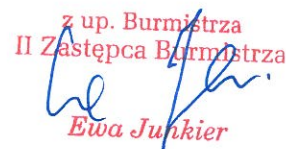 z up. Burmistrza
II Zastępca Burmistrza
Ewa Junkier